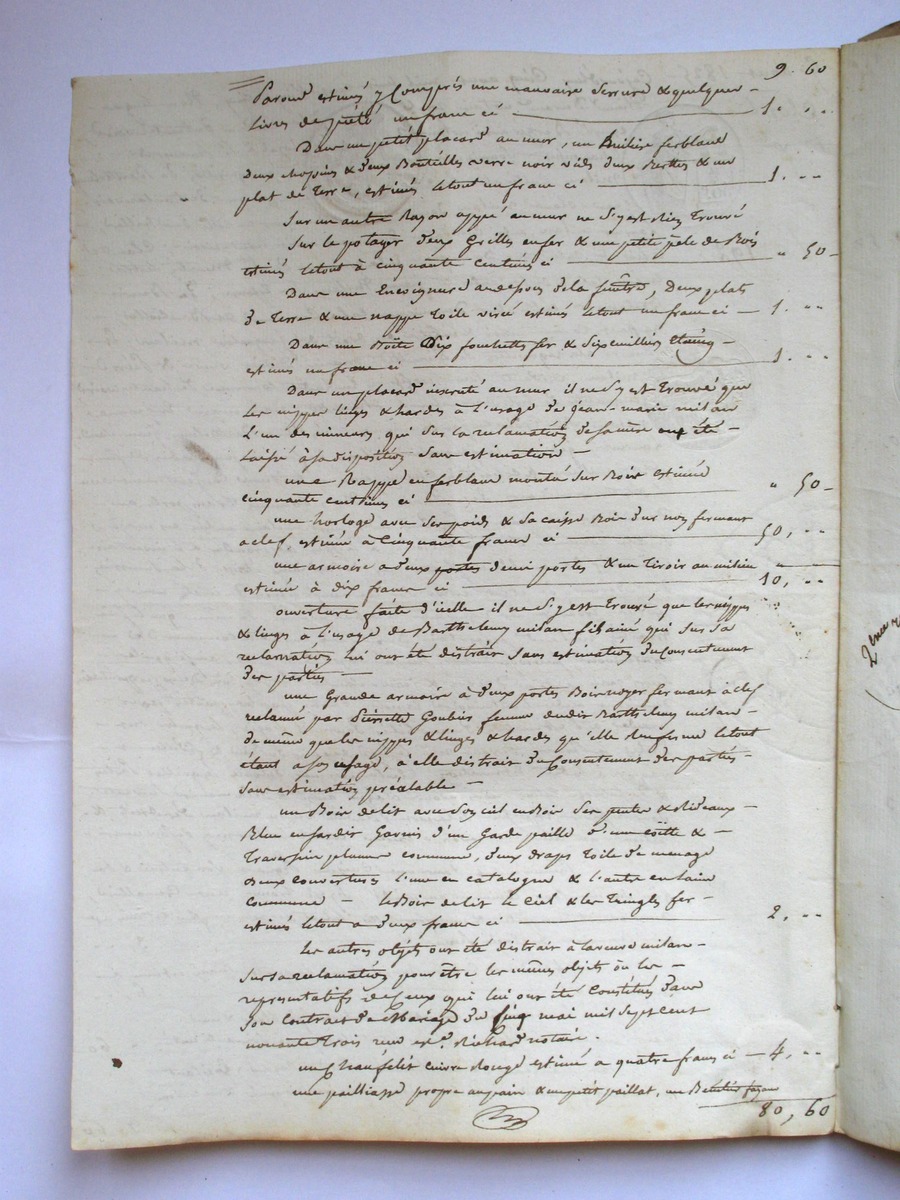 9. 60
estimés y Compris une mauvaise Serrure & quelques
Livres de piété un franc ci — 1. "
Dans un petit placard au mur, un ferblanc
deux & deux Bouteilles verre noir vides deux & un
plat de Terre, estimés le tout un franc ci — 1. "
Sur un autre Rayon au mur ne S'y est rien Trouvé
Sur le potager deux Grilles en fer & une petite pèle de Bois
estimés le tout à cinquante centimes ci — " 50
Dans une Encoignure au dessous de la fenêtre, Deux plats
de Terre & une nappe Toile estimés le tout un franc ci — 1. "
Dans une Boëte Six fourchettes fer & Six cuilliers
estimés un franc ci — 1. "
Dans un placard au mur il ne S'y est Trouvé que
les nippes linges & hardes à l'usage de jean-marie milan
L'un des mineurs qui Sur la reclamation de sa mère ont été
Laissé à sa disposition Sans estimation —
une Rappe en ferblanc monté Sur Bois estimée
cinquante centimes ci — " 50
une horloge avec Ses poids & Sa caisse Bois dur noy fermant
a clef estimée à Cinquante francs ci — 50, "
une armoire a deux portes demi portes & un Tiroir au milieu
estimée à dix francs ci — 10, "
ouverture faite d'icelle il ne S'y est Trouvé que les nippes
& linges à l'usage de Barthelemy milan fils ainé qui Sur Sa
reclamation lui ont été distrait Sans estimation du Consentement
des parties —
une Grande armoire à deux portes Bois noyer fermant à clef
reclamée par Pierrette Goubier femme dudit Barthelemy milan
de même que les nippes & linges & hardes qu'elle Renferme le tout
étant a son usage, à elle distrait du Consentement des parties
Sans estimation préalable —
un Bois de lit avec Son ciel en Bois Ses pentes & Rideaux
Bleu en Garnis d'un Garde paille d'une coëtte &
Traversin plume commune, deux draps Toile de menage
deux couvertures l'une en catalogne & l'autre en laine
commune — le Bois de lit le Ciel & les Tringles fer
estimés le tout a deux francs ci — 2, "
Les autres objets ont été distrait à la veuve milan
Sur Sa reclamation pour être les mêmes objets ou les
representatifs de Ceux qui lui ont été Constitués dans
Son Contrat de Mariage du Cinq mai mil Sept cent
nonante Trois reçu Richard notaire.
un Chaufelit cuivre Rouge estimé a quatre francs ci — 4, "
une paillasse propre au pain & un petit paillat, un
80, 60
2eme